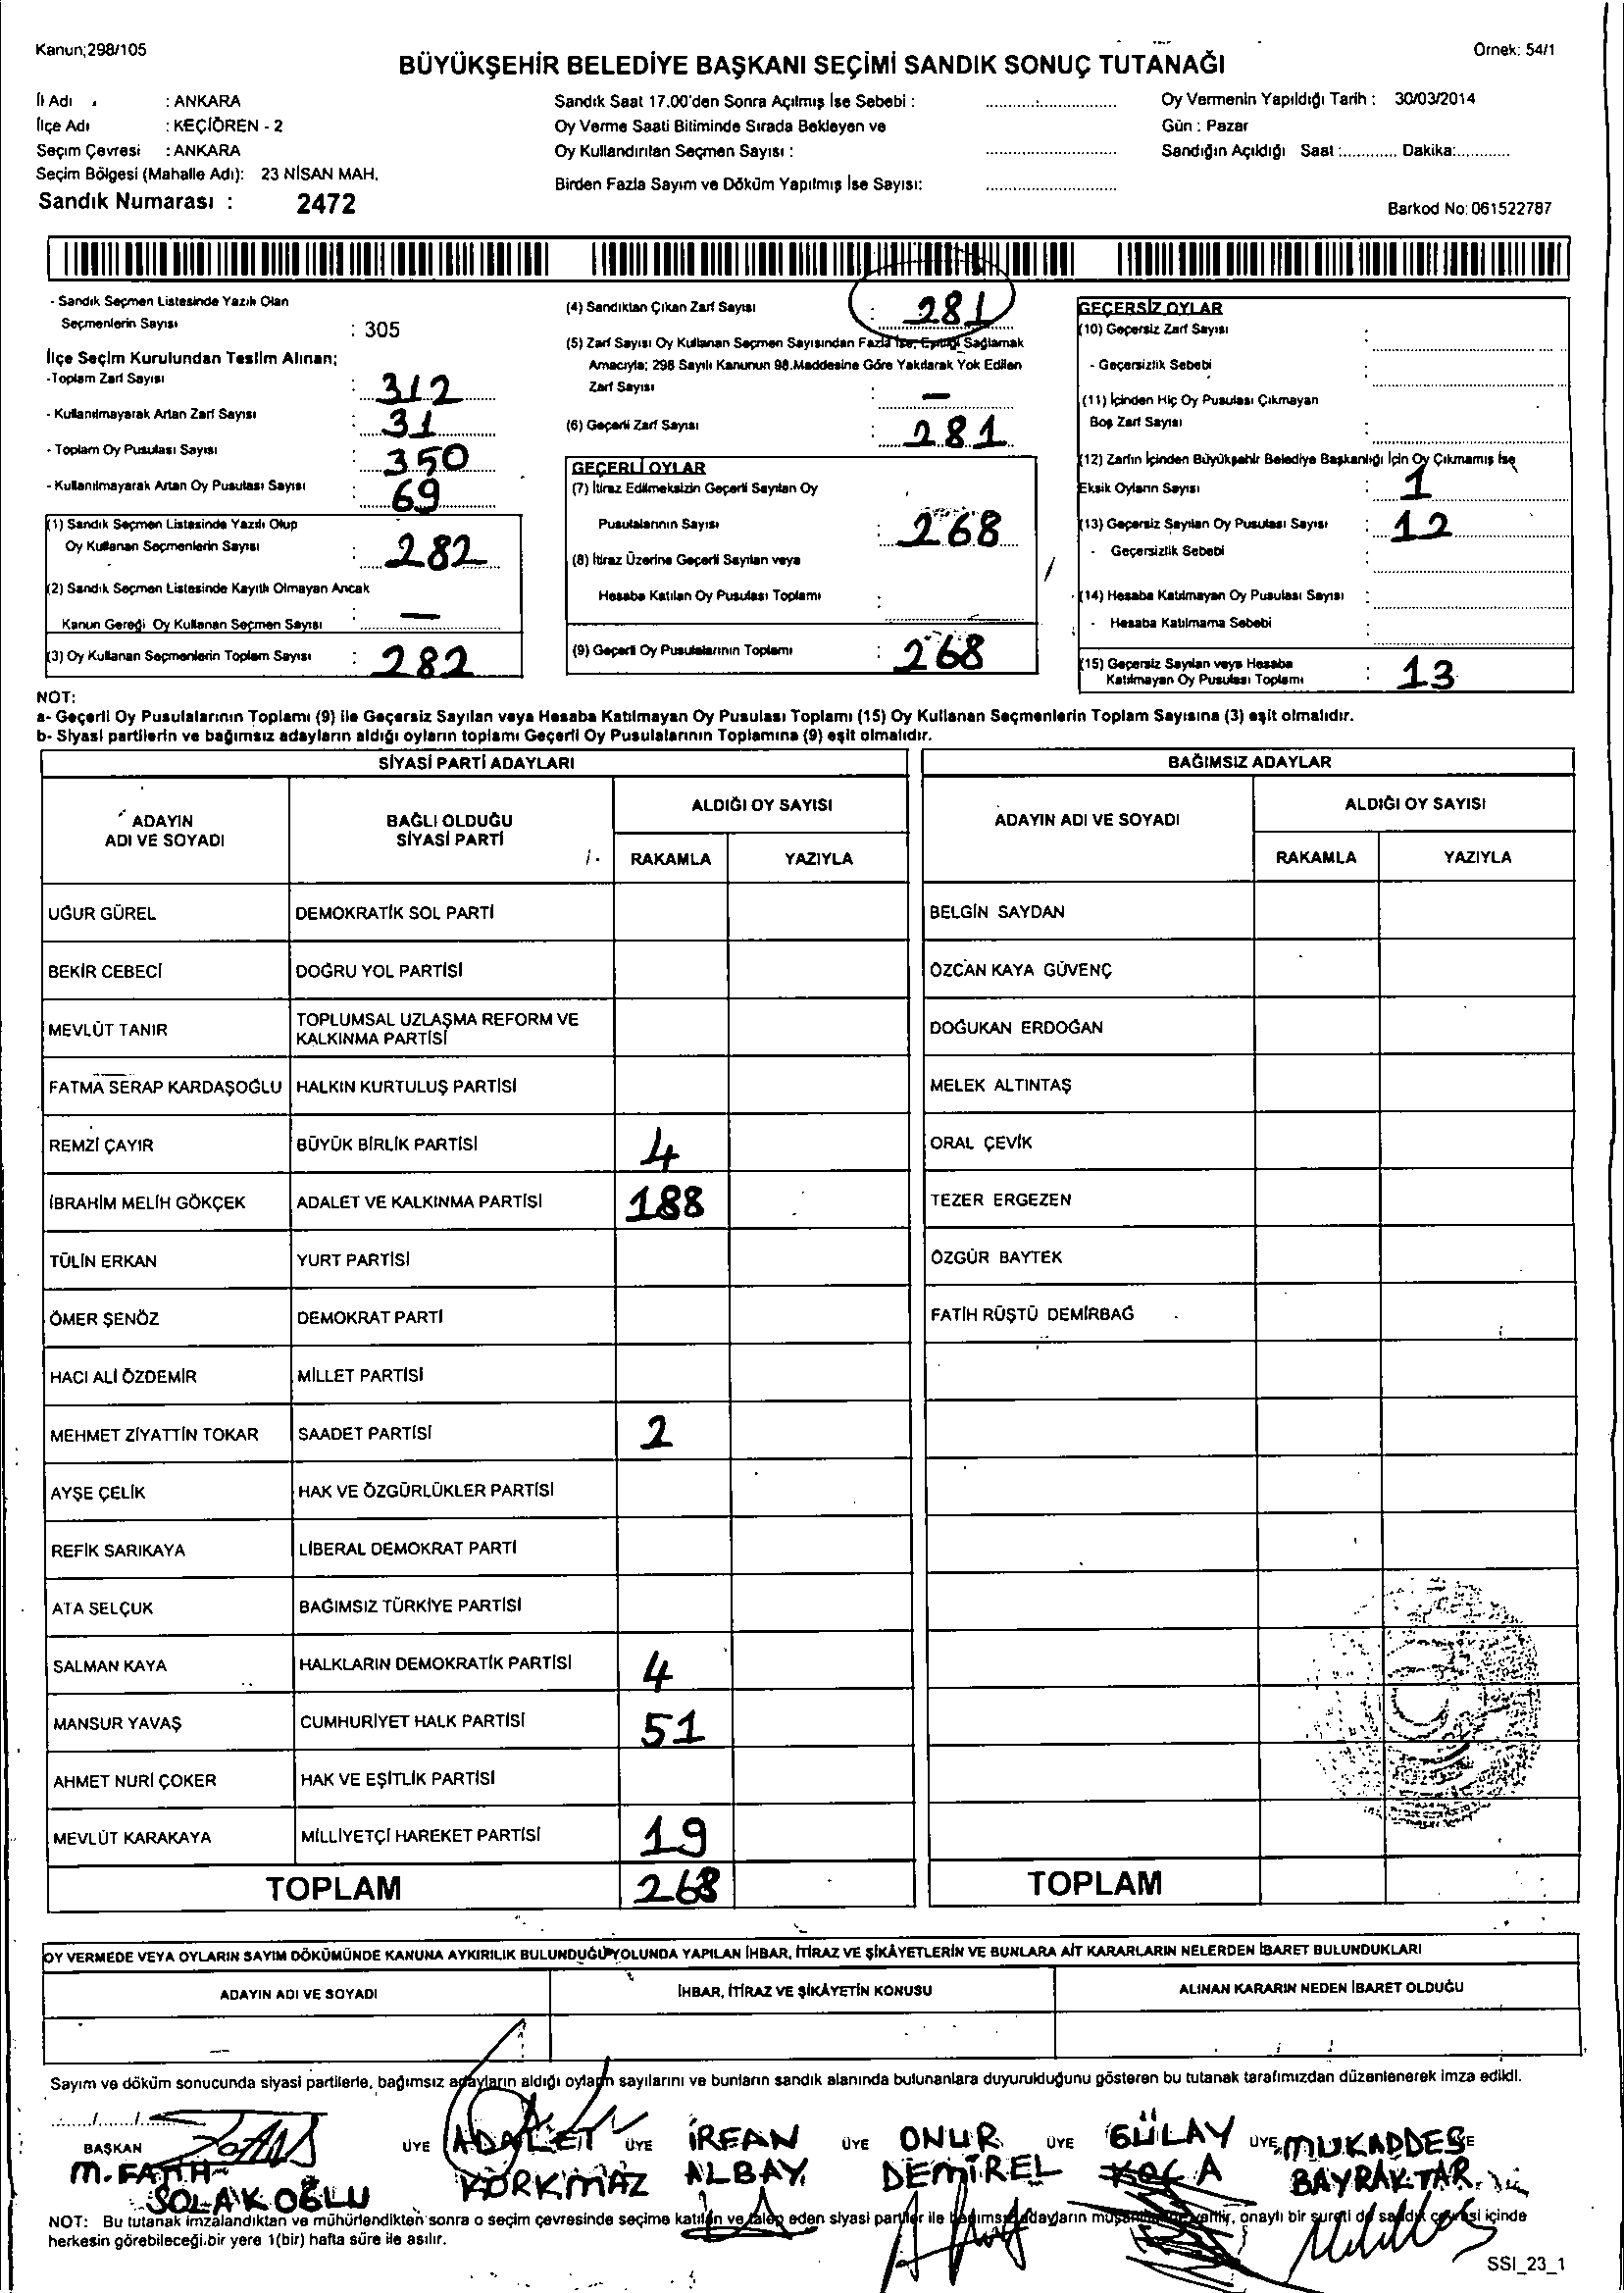 Kanun;298/105
Örnek: 54/1
BÜYÜKŞEHİR BELEDİYE BAŞKANI SEÇİMİ SANDIK SONUÇ TUTANAĞI
İl Adı : ANKARA
İlçe Adı : KEÇİÖREN - 2
Seçim Çevresi : ANKARA
Seçim Bölgesi (Mahalle Adı): 23 NİSAN MAH.
Sandık Numarası : 2472
Sandık Saat 17.00'den Sonra Açılmış İse Sebebi :
Oy Verme Saati Bitiminde Sırada Bekleyen ve
Oy Kullandırılan Seçmen Sayısı :
Birden Fazla Sayım ve Döküm Yapılmış İse Sayısı:
Oy Vermenin Yapıldığı Tarih : 30/03/2014
Gün : Pazar
Sandığın Açıldığı Saat :............ Dakika:...........
Barkod No: 061522787
- Sandık Seçmen Listesinde Yazılı Olan
Seçmenlerin Sayısı : 305
İlçe Seçim Kurulundan Teslim Alınan;
-Toplam Zarf Sayısı : 312
- Kullanılmayarak Artan Zarf Sayısı : 31
- Toplam Oy Pusulası Sayısı : 350
- Kullanılmayarak Artan Oy Pusulası Sayısı : 69
(1) Sandık Seçmen Listesinde Yazılı Olup
Oy Kullanan Seçmenlerin Sayısı : 282
(2) Sandık Seçmen Listesinde Kayıtlı Olmayan Ancak
Kanun Gereği Oy Kullanan Seçmen Sayısı : —
(3) Oy Kullanan Seçmenlerin Toplam Sayısı : 282
(4) Sandıktan Çıkan Zarf Sayısı : 281
(5) Zarf Sayısı Oy Kullanan Seçmen Sayısından Fazla İse, Eşitliği Sağlamak
Amacıyla; 298 Sayılı Kanunun 98.Maddesine Göre Yakılarak Yok Edilen
Zarf Sayısı : —
(6) Geçerli Zarf Sayısı : 281
GEÇERLİ OYLAR
(7) İtiraz Edilmeksizin Geçerli Sayılan Oy
Pusulalarının Sayısı : 268
(8) İtiraz Üzerine Geçerli Sayılan veya
Hesaba Katılan Oy Pusulası Toplamı :
(9) Geçerli Oy Pusulalarının Toplamı : 268
GEÇERSİZ OYLAR
(10) Geçersiz Zarf Sayısı :
- Geçersizlik Sebebi :
(11) İçinden Hiç Oy Pusulası Çıkmayan
Boş Zarf Sayısı :
(12) Zarfın İçinden Büyükşehir Belediye Başkanlığı İçin Oy Çıkmamış İse
Eksik Oyların Sayısı : 1
(13) Geçersiz Sayılan Oy Pusulası Sayısı : 12
- Geçersizlik Sebebi :
(14) Hesaba Katılmayan Oy Pusulası Sayısı :
- Hesaba Katılmama Sebebi :
(15) Geçersiz Sayılan veya Hesaba
Katılmayan Oy Pusulası Toplamı : 13
NOT:
a- Geçerli Oy Pusulalarının Toplamı (9) ile Geçersiz Sayılan veya Hesaba Katılmayan Oy Pusulası Toplamı (15) Oy Kullanan Seçmenlerin Toplam Sayısına (3) eşit olmalıdır.
b- Siyasi partilerin ve bağımsız adayların aldığı oyların toplamı Geçerli Oy Pusulalarının Toplamına (9) eşit olmalıdır.
SİYASİ PARTİ ADAYLARI
BAĞIMSIZ ADAYLAR
ADAYIN ADI VE SOYADI
BAĞLI OLDUĞU SİYASİ PARTİ
ALDIĞI OY SAYISI
RAKAMLA YAZIYLA
ADAYIN ADI VE SOYADI
ALDIĞI OY SAYISI
RAKAMLA YAZIYLA
UĞUR GÜREL DEMOKRATİK SOL PARTİ BELGİN SAYDAN
BEKİR CEBECİ DOĞRU YOL PARTİSİ ÖZCAN KAYA GÜVENÇ
MEVLÜT TANIR TOPLUMSAL UZLAŞMA REFORM VE KALKINMA PARTİSİ DOĞUKAN ERDOĞAN
FATMA SERAP KARDAŞOĞLU HALKIN KURTULUŞ PARTİSİ MELEK ALTINTAŞ
REMZİ ÇAYIR BÜYÜK BİRLİK PARTİSİ 4 ORAL ÇEVİK
İBRAHİM MELİH GÖKÇEK ADALET VE KALKINMA PARTİSİ 188 TEZER ERGEZEN
TÜLİN ERKAN YURT PARTİSİ ÖZGÜR BAYTEK
ÖMER ŞENÖZ DEMOKRAT PARTİ FATİH RÜŞTÜ DEMİRBAĞ
HACI ALİ ÖZDEMİR MİLLET PARTİSİ
MEHMET ZİYATTİN TOKAR SAADET PARTİSİ 2
AYŞE ÇELİK HAK VE ÖZGÜRLÜKLER PARTİSİ
REFİK SARIKAYA LİBERAL DEMOKRAT PARTİ
ATA SELÇUK BAĞIMSIZ TÜRKİYE PARTİSİ
SALMAN KAYA HALKLARIN DEMOKRATİK PARTİSİ 4
MANSUR YAVAŞ CUMHURİYET HALK PARTİSİ 51
AHMET NURİ ÇOKER HAK VE EŞİTLİK PARTİSİ
MEVLÜT KARAKAYA MİLLİYETÇİ HAREKET PARTİSİ 19
TOPLAM 268 TOPLAM
OY VERMEDE VEYA OYLARIN SAYIM DÖKÜMÜNDE KANUNA AYKIRILIK BULUNDUĞU YOLUNDA YAPILAN İHBAR, İTİRAZ VE ŞİKÂYETLERİN VE BUNLARA AİT KARARLARIN NELERDEN İBARET BULUNDUKLARI
ADAYIN ADI VE SOYADI İHBAR, İTİRAZ VE ŞİKÂYETİN KONUSU ALINAN KARARIN NEDEN İBARET OLDUĞU
Sayım ve döküm sonucunda siyasi partilerle, bağımsız adayların aldığı oyların sayılarını ve bunların sandık alanında bulunanlara duyurulduğunu gösteren bu tutanak tarafımızdan düzenlenerek imza edildi.
BAŞKAN ÜYE ÜYE ÜYE ÜYE ÜYE
M. FATİH SOLAKOĞLU
ADALET KORKMAZ
İRFAN ALBAY
ONUR DEMİREL
GÜLAY KOCA
MUKADDES BAYRAKTAR
NOT: Bu tutanak imzalandıktan ve mühürlendikten sonra o seçim çevresinde seçime katılan ve talep eden siyasi partiler ile bağımsız adayların müşahitlerine verilir, onaylı bir sureti de sandık çevresi içinde
herkesin görebileceği bir yere 1(bir) hafta süre ile asılır.
SSI_23_1